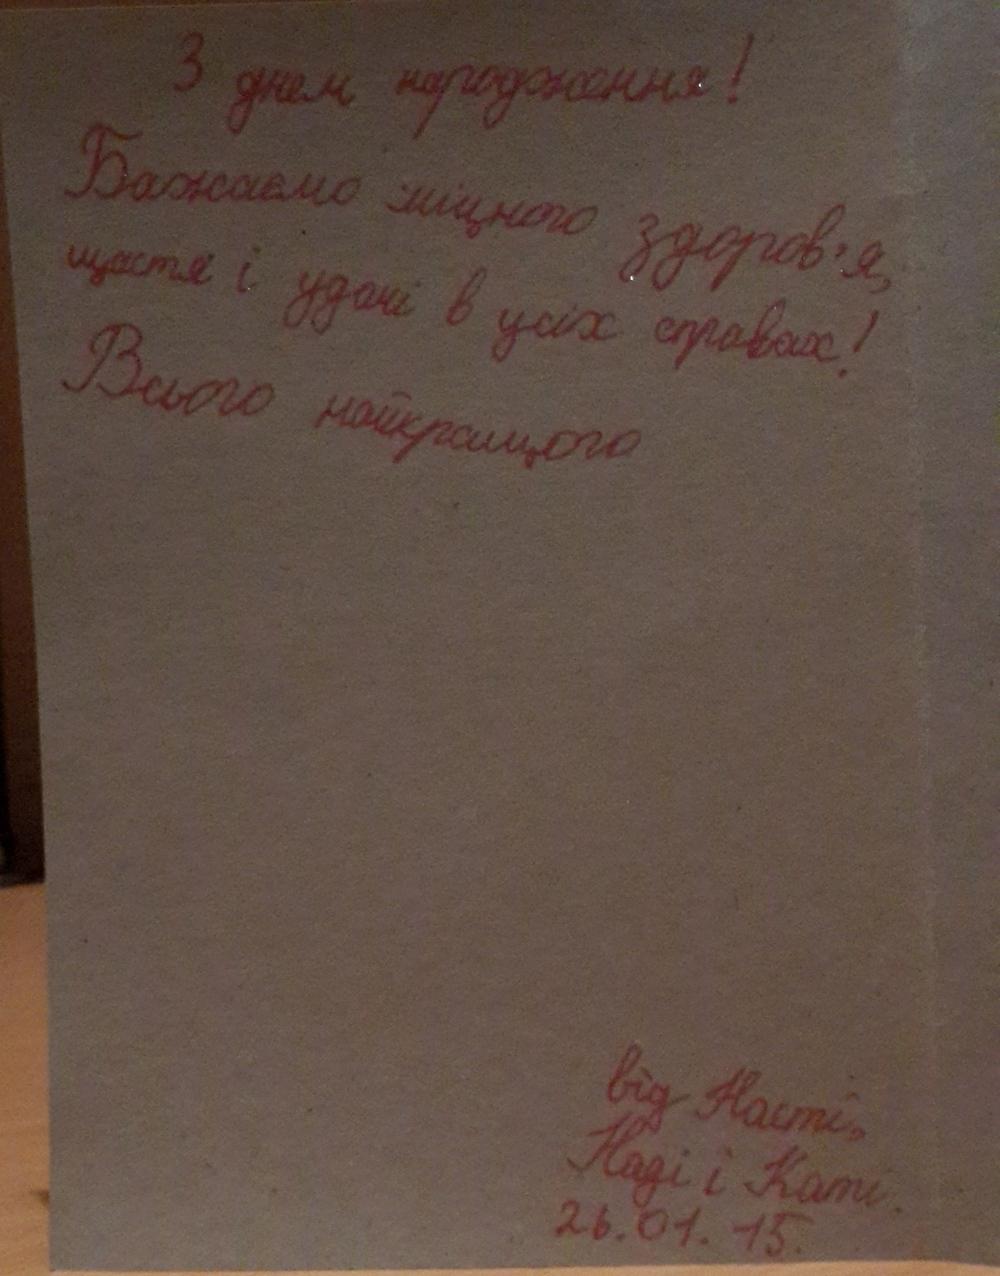 З днем народження!
Бажаємо міцного здоров'я,
щастя і удачі в усіх справах!
Всього найкращого
від Насті,
Наді і Каті.
26.01.15.